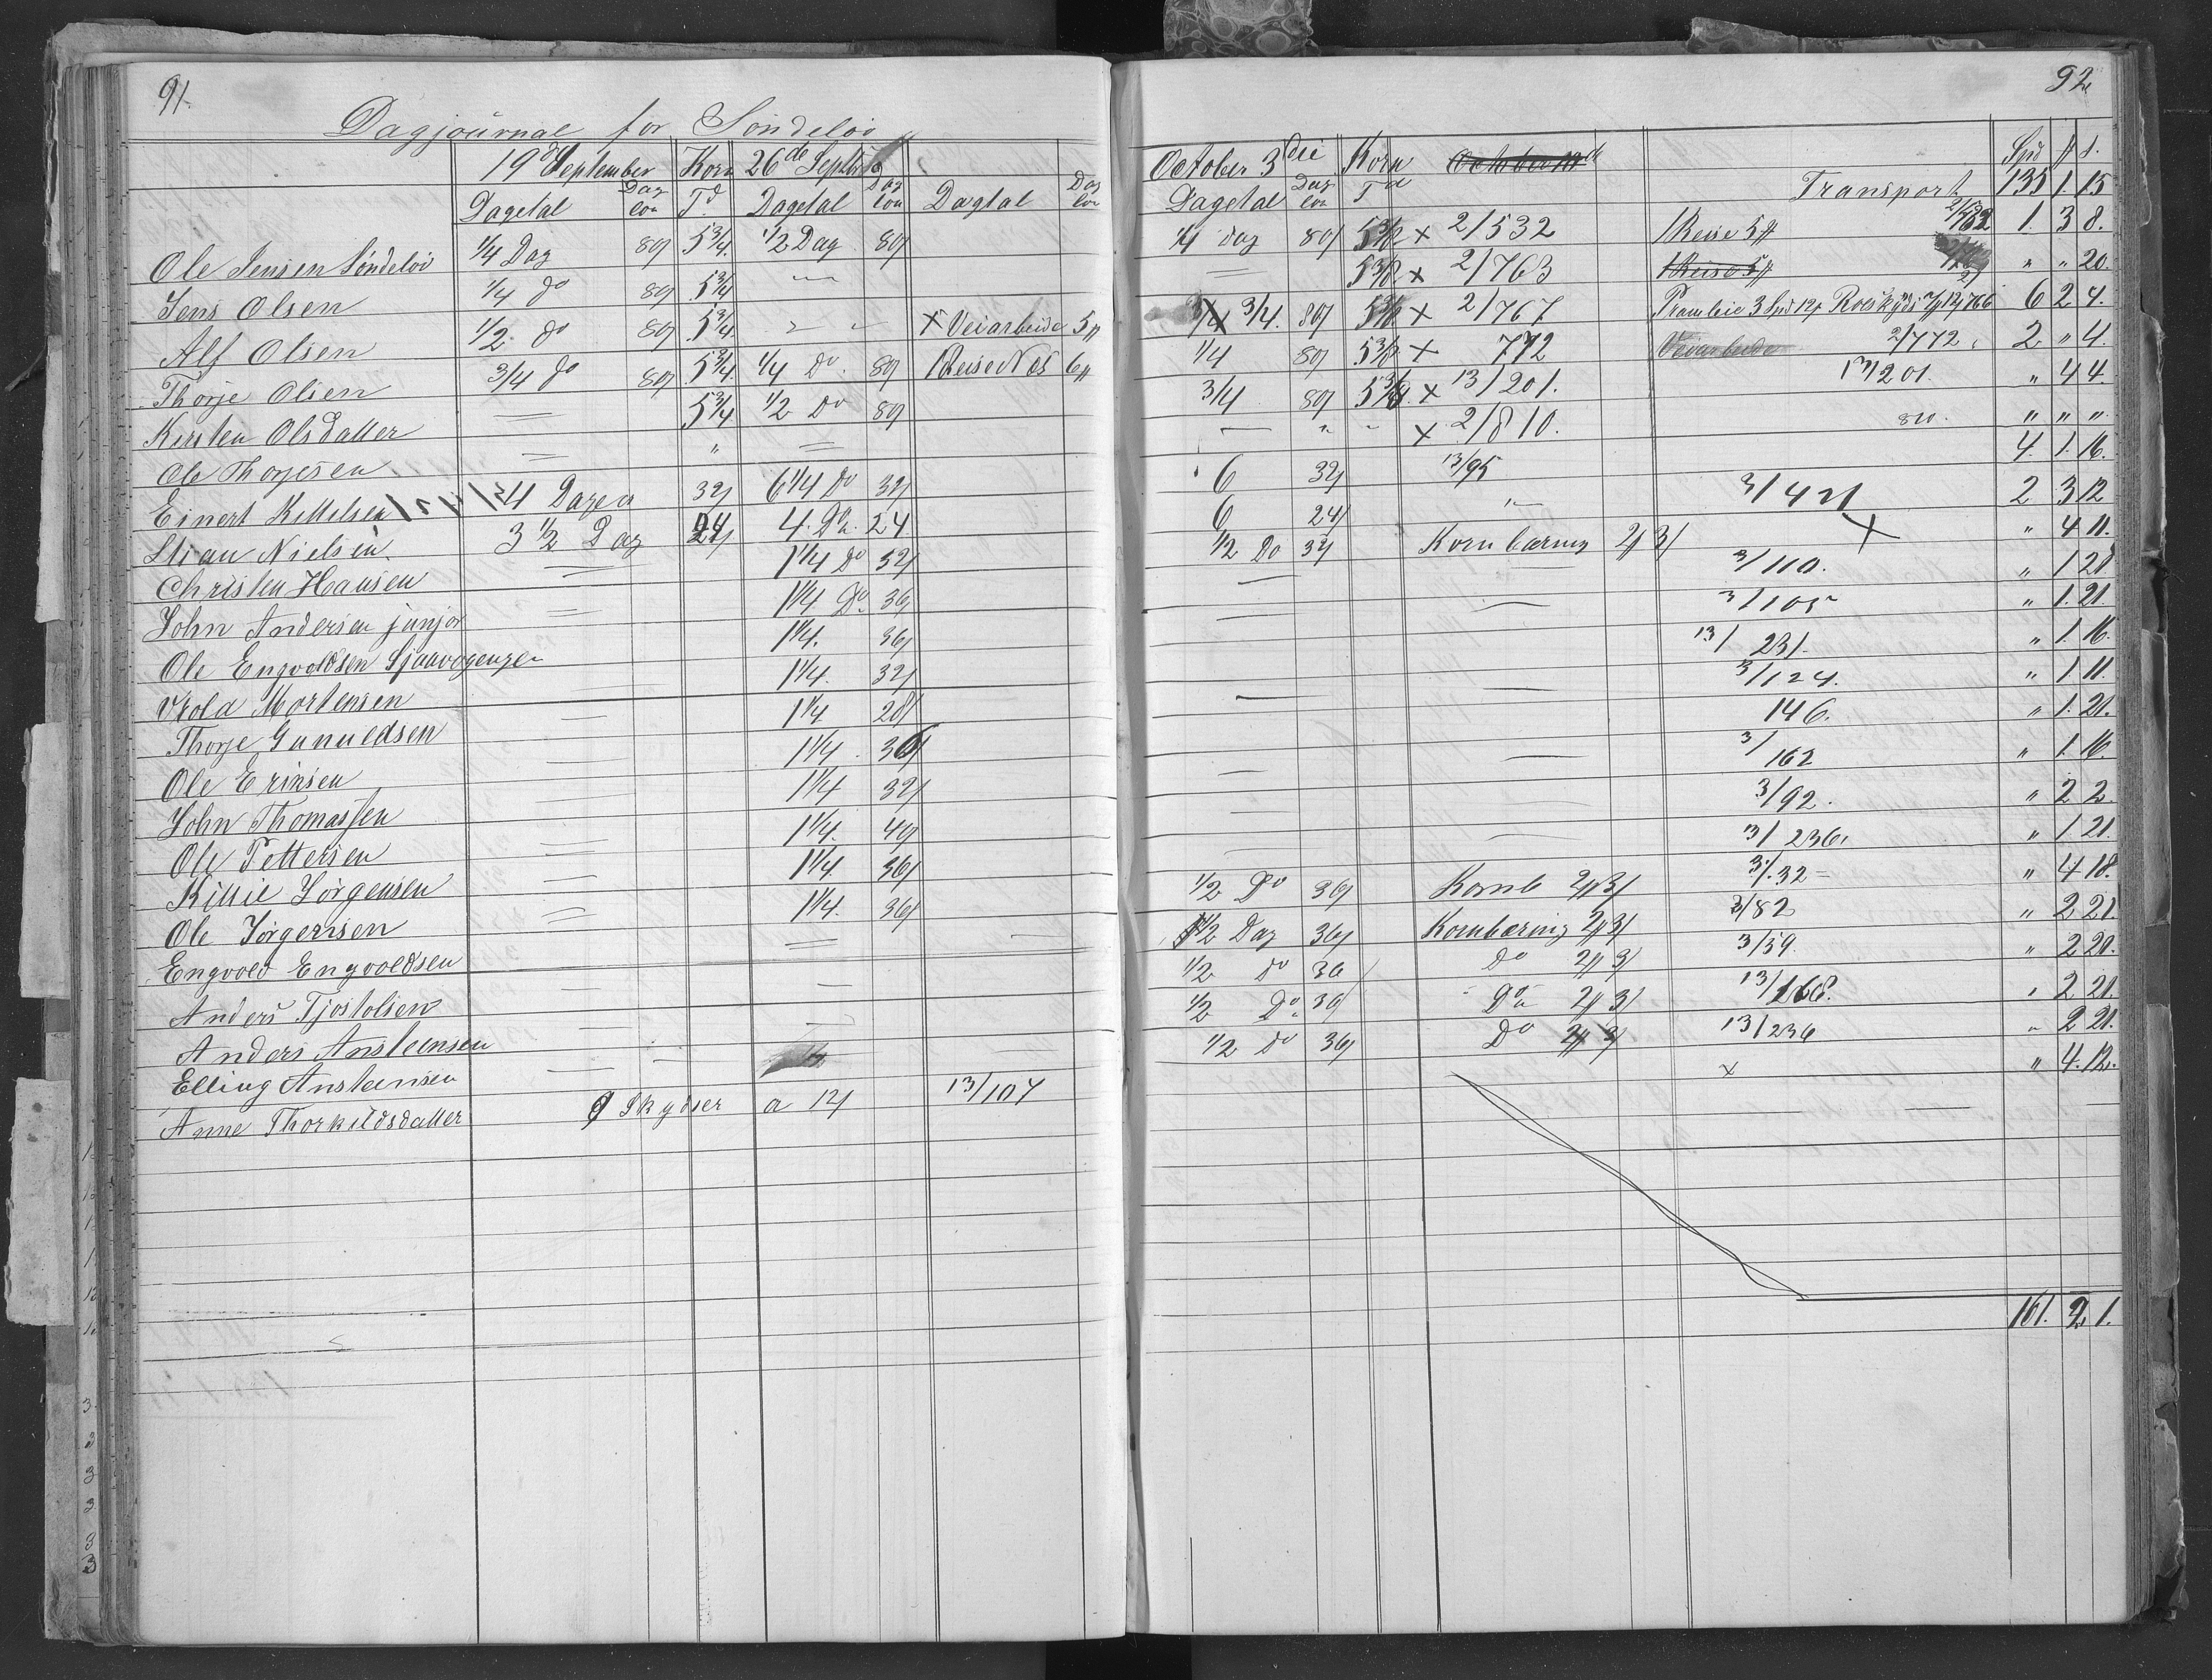 91.
Dagjournal for Söndelöv
19d September Korn 26de Septbr
Dagetal Daglön Td. Dagetal Daglön Dagtal Daglön
Ole Jensen Söndelöv 1/4 Dag 80/ 5 3/4. 1/2 Dag 80/
Jens Olsen 1/4 do 80/ 5 3/4 —
Alf Olsen 1/2 do 80/ 5 3/4. " — x Veiarbeide 5
Thorje Olsen 3/4 do 80/ 5 3/4. 1/4 Do. 80/ 1 Reise Nes 6
Kirsten Olsdatter = 5 3/4 1/2 Do 80/
Ole Thorjesen = " =
Einert Kittelsen 4 Dage 32/ 6 1/4 Do 32/
Stian Nielsen 3 1/2 Dag 24/ 4. Do. 24
Christen Hansen = 1 1/4 Do 32/
John Andersen junjor = 1 1/4 Do. 36/
Ole Engvoldsen = 1 1/4. 36/
Mortensen 1 1/4. 32/
Thorje Gunueldsen = 1 1/4 28/
Ole Erinsen = 1 1/4 36/
John Thomassen = 1 1/4 32/
Ole Pettersen = 1 1/4. 40/
Killie Jörgensen = 1 1/4. 36/
Ole Jörgensen = 1 1/4. 36/
Engvold Engvoldsen = =
Anders Tjostolsen = —
Anders Anstensen = —
Elling Anstensen — —
Anne Thorkildsdatter Skydser a 12/ 13/107
92.
October 3die Korn
Dagetal Daglön Td Transport Spd # s.
135 1. 15
1/4 dag 80/ 5 3/8 x 2/532 1 Reise 5 1. 3 8.
= 5 3/8 x 2/763 1 Reise 5 " " 20.
3/4. 80/ 5 3/8 x 2/767 6 2 4.
1/4 80/ 5 3/8 x 772 Veiarbeide 2/772. 2 " 4.
3/4 80/ 5 3/8 x 13/201. 13/201. " 4 4.
— " " x 2/810. 810. " " "
6 32/ 13/95 4. 1. 16.
6 24/ " 3/421 2 3 12
1/2 Do 32/ Kornbæring 2# 3/ x " 4 11.
— — 3/110. " 1 21
— — 3/105 " 1. 21.
— — 13/231. " 1. 16.
— — 3/124. " 1 11.
— — 146. " 1. 21.
— — 3/162 " 1. 16.
— — 3/92. " 2 2.
— — 13/236. " 1 21.
1/2 Do 36/ Kornb 2# 3/ 3/.32 " 4 18.
1/2 Dag 36/ Kornbæring 2# 3/ 3/82 " 2 21.
1/2 do 36 Do 2# 3/ 3/59. " 2 20.
1/2 Do 36/ Do 2# 3/ 13/168. " 2 21.
1/2 do 36/ Do 2# 3/ 13/236 " 2 21.
x " 4. 12.
161. 2 1.